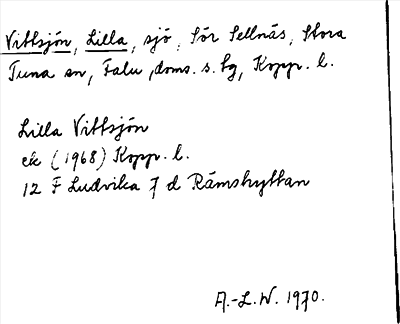 Vittsjön, Lilla, sjö, Sör Sellnäs, Stora
Tuna sn, Falu doms. s. lg, Kopp. l.
Lilla Vittsjön
ek (1968) Kopp. l.
12 F Ludvika 7 d Rämshyttan
A.-L.W. 1970.